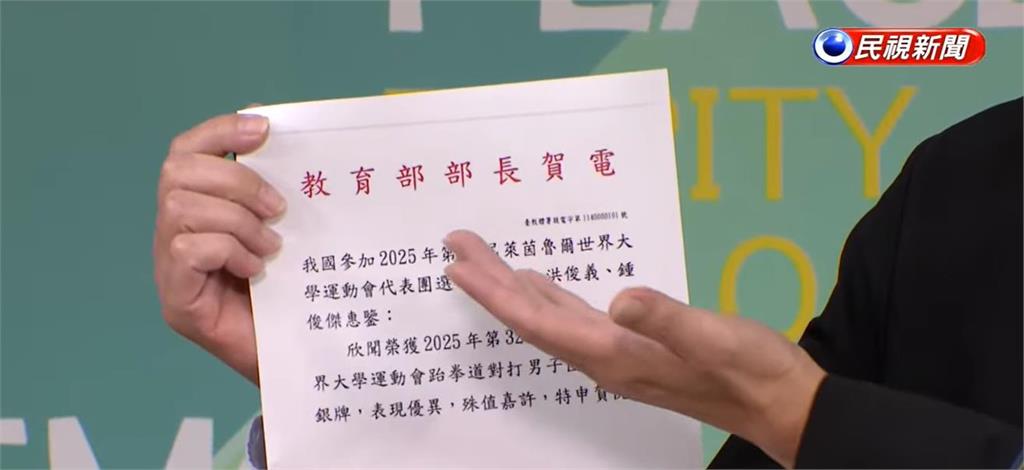 民視新聞
教育部部長賀電
臺教體署競電字第1140000101號
我國參加2025年第 萊茵魯爾世界大
學運動會代表團選 洪俊義、鍾
俊傑惠鑒：
欣聞榮獲2025年第32
界大學運動會跆拳道對打男子
銀牌，表現優異，殊值嘉許，特申賀
ITY